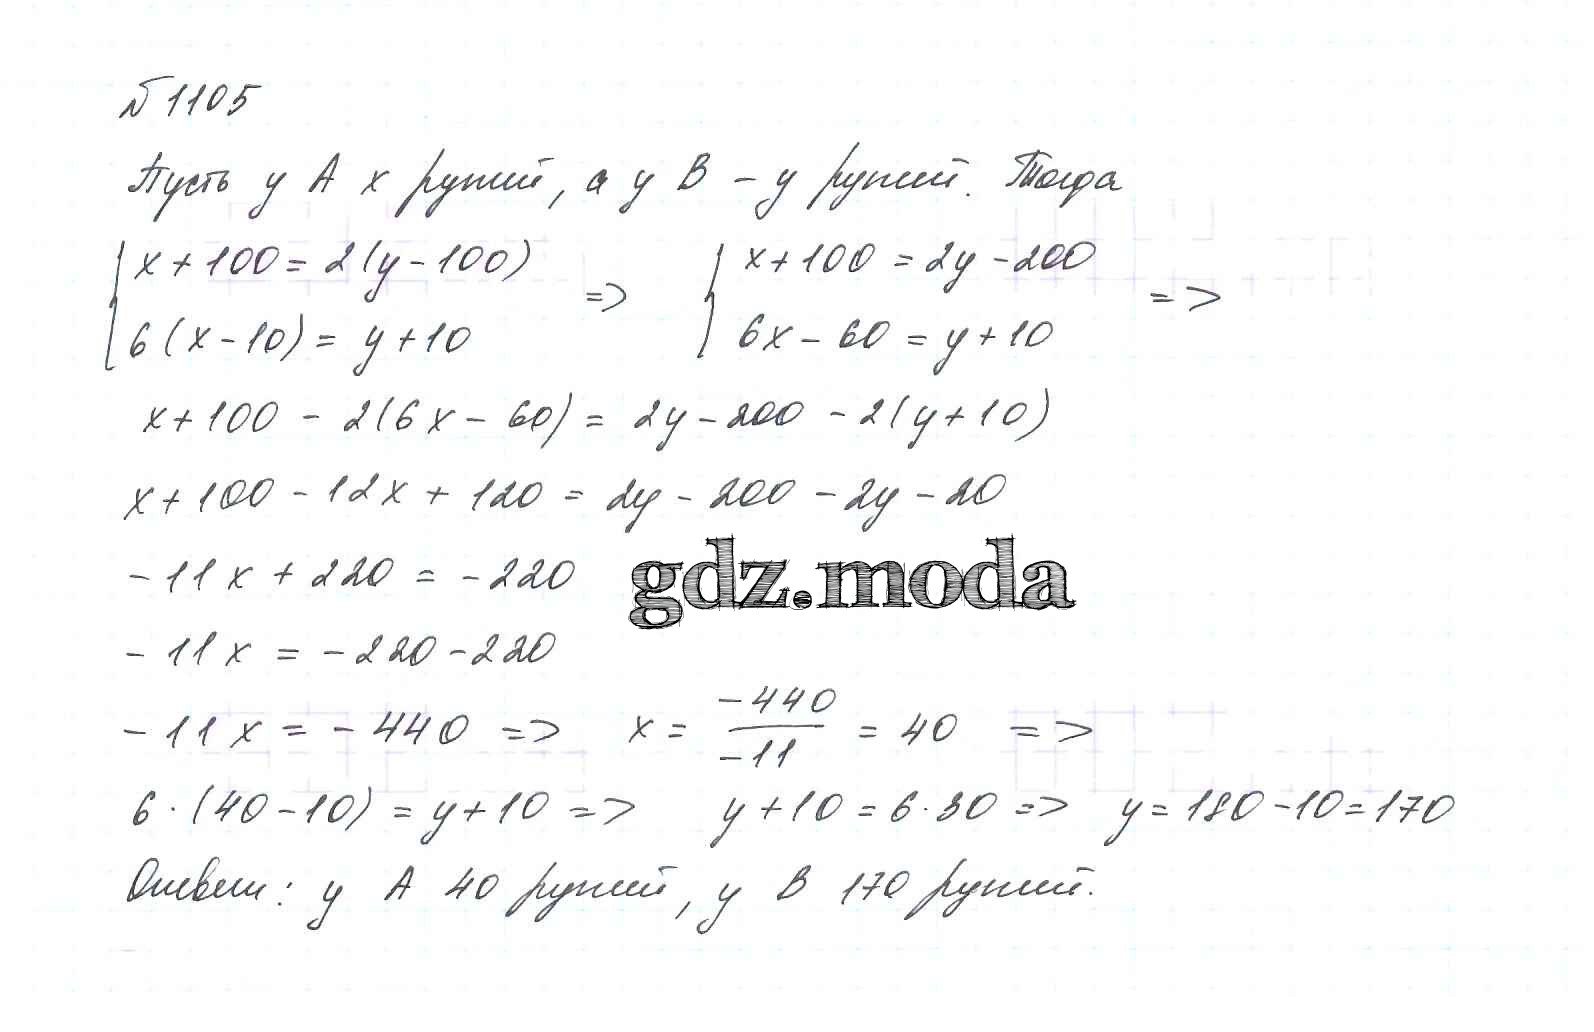 №1105
Пусть у А x рупий, а у В – y рупий. Тогда
{ x + 100 = 2(y - 100) => { x + 100 = 2y - 200 =>
6(x - 10) = y + 10 6x - 60 = y + 10
x + 100 - 2(6x - 60) = 2y - 200 - 2(y + 10)
x + 100 - 12x + 120 = 2y - 200 - 2y - 20
- 11x + 220 = - 220
gdz.moda
- 11x = - 220 - 220
- 11x = - 440 => x = -440/-11 = 40 =>
6 · (40 - 10) = y + 10 => y + 10 = 6 · 30 => y = 180 - 10 = 170
Ответ: у А 40 рупий, у В 170 рупий.